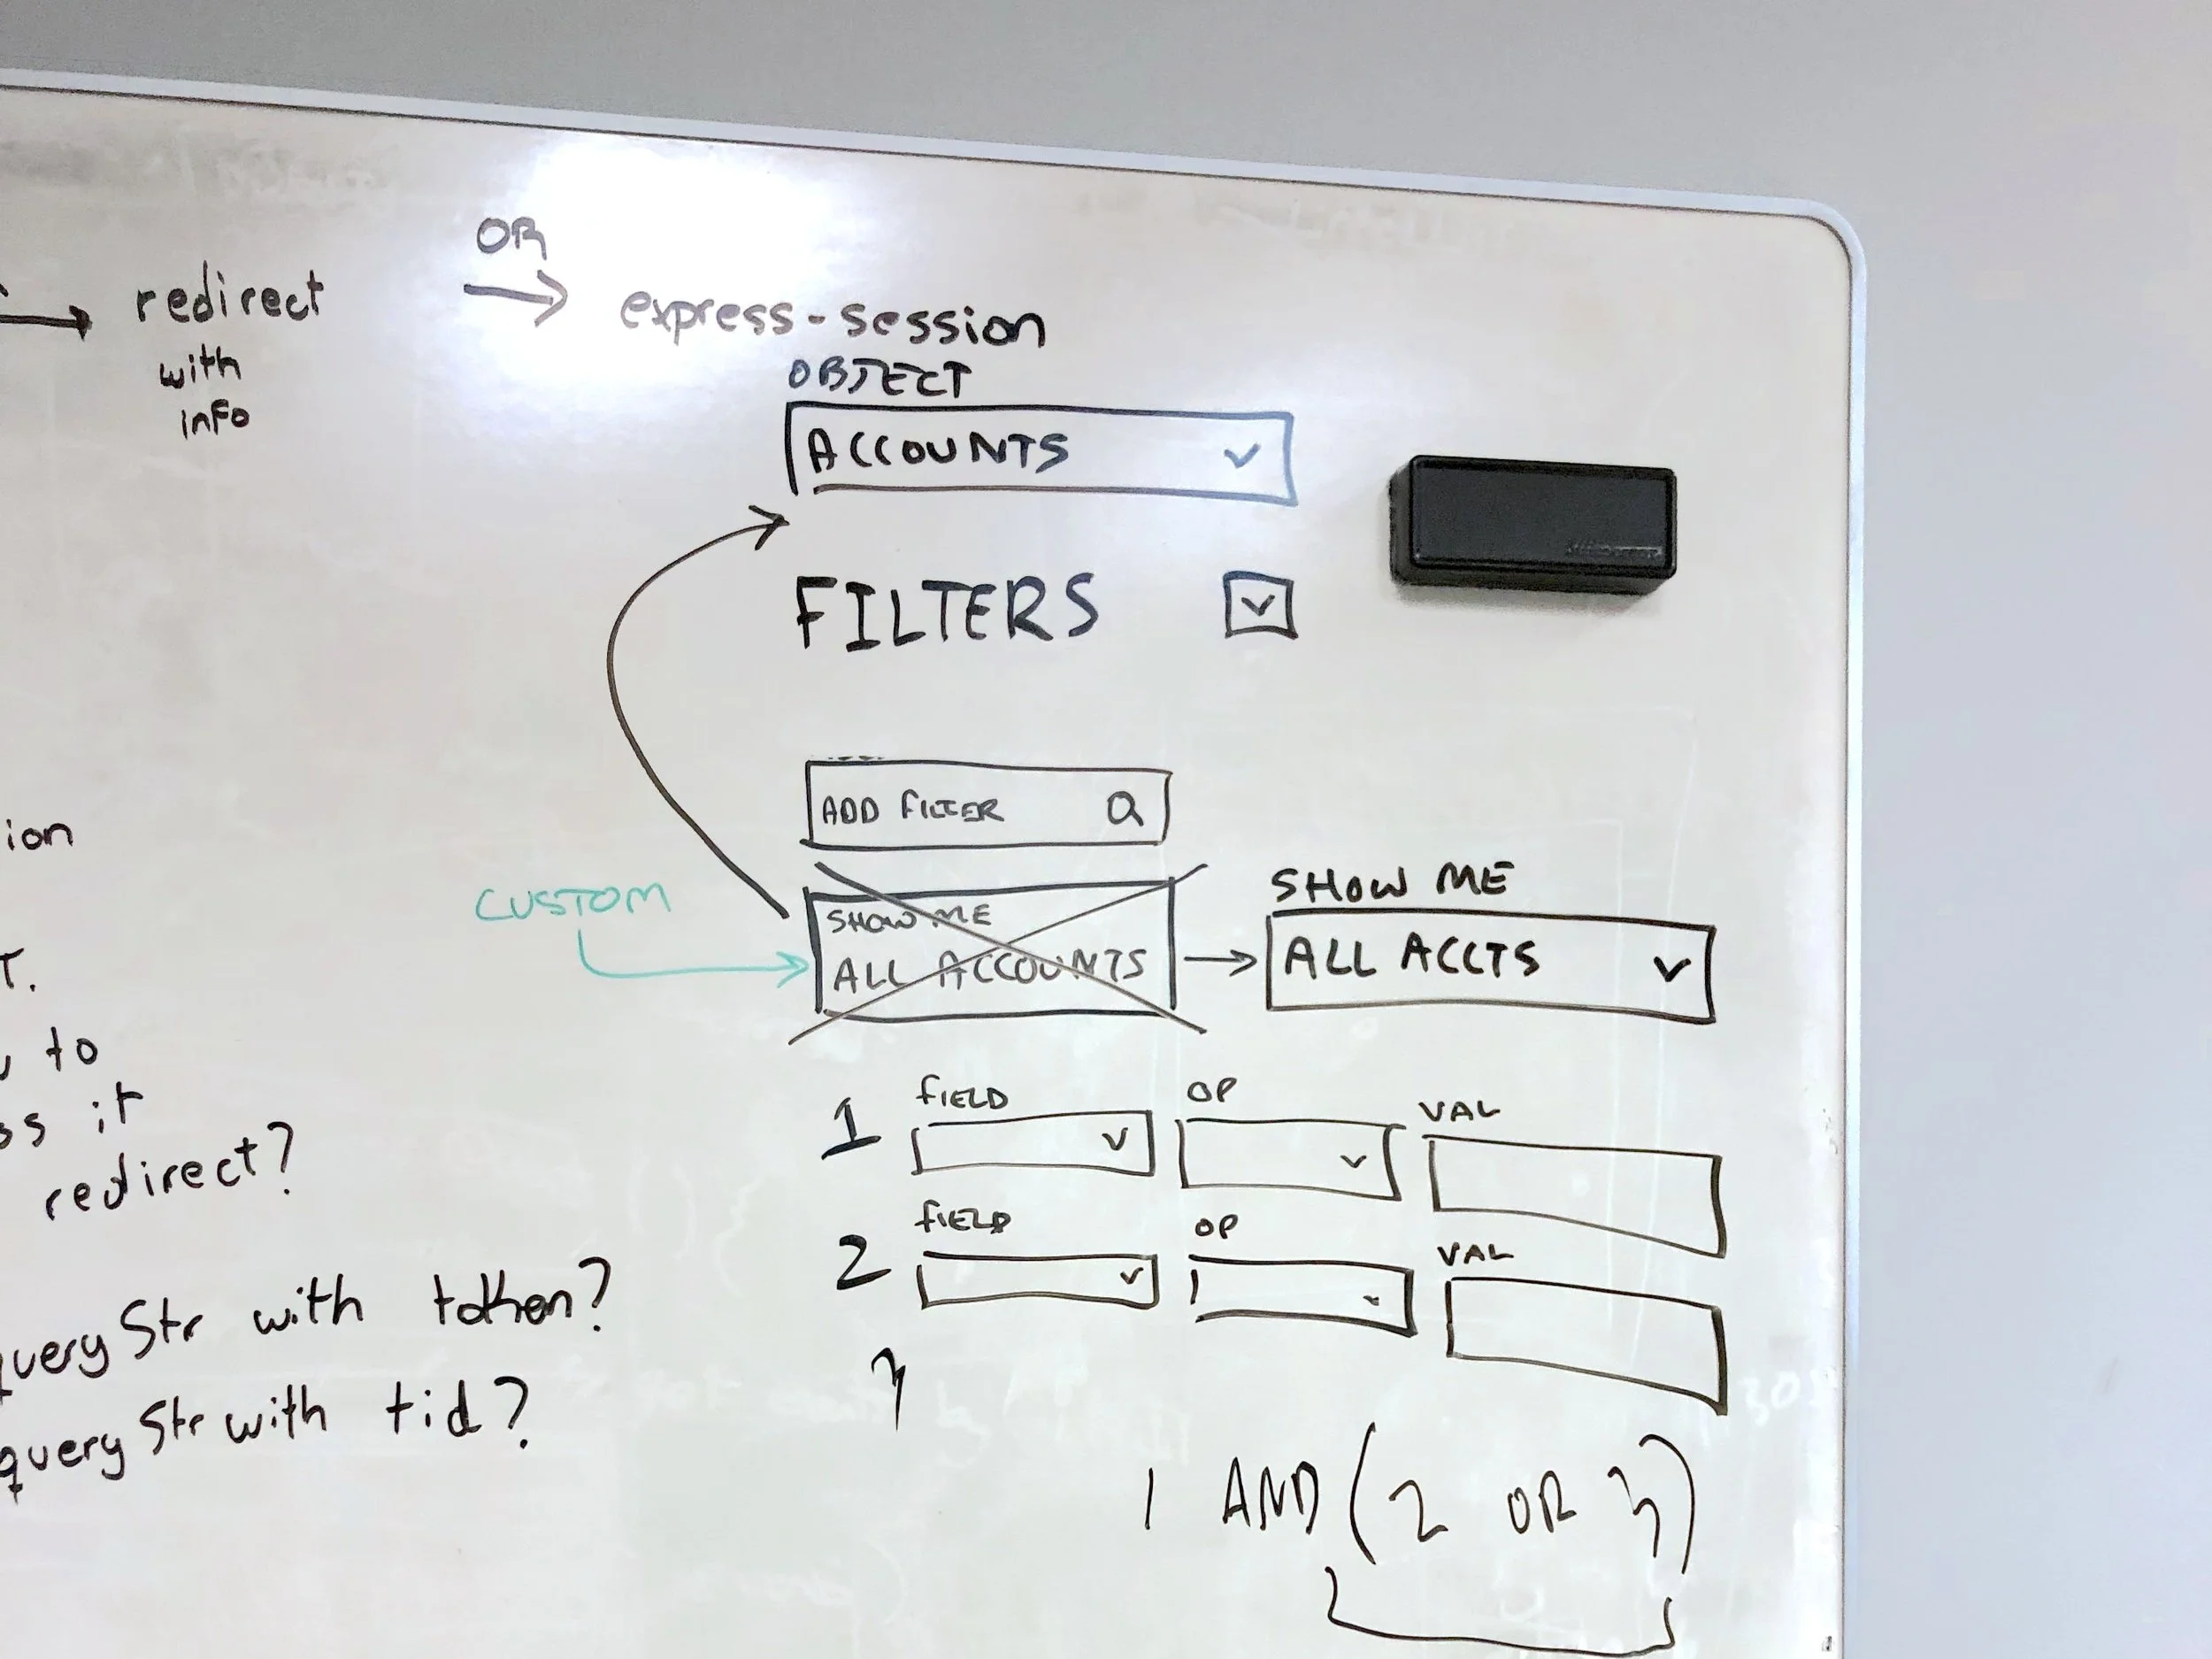 OR
redirect
with
info
express-session
OBJECT
ACCOUNTS
FILTERS
ADD FILTER
CUSTOM
SHOW ME
ALL ACCOUNTS
SHOW ME
ALL ACCTS
1 FIELD OP VAL
2 FIELD OP VAL
3
1 AND (2 OR 3)
ion
T.
to
ss it
redirect?
query Str with token?
query Str with tid?